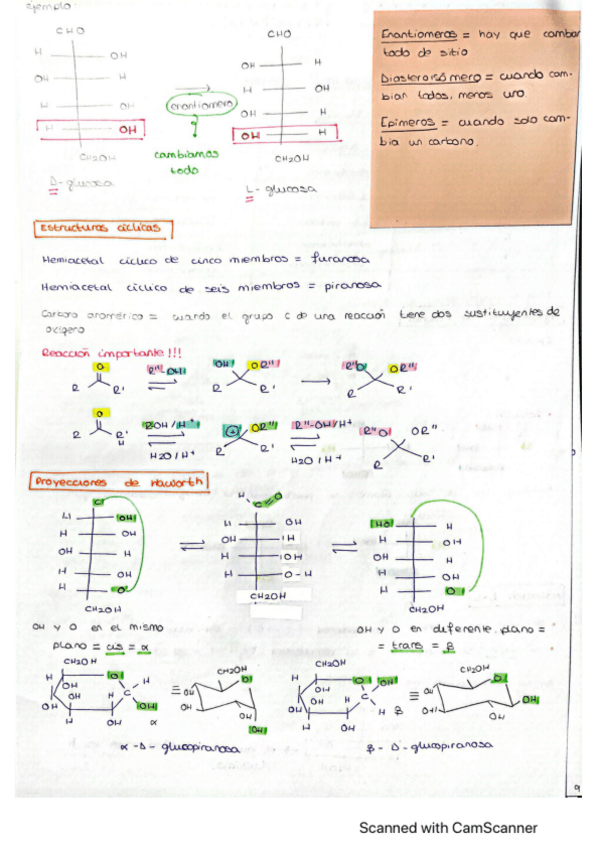 Ejemplo:
CHO
H OH
OH H
H OH
H OH
CH2OH
D-glucosa
enantiomero
cambiamos
todo
CHO
OH H
H OH
OH H
OH H
CH2OH
L-glucosa
Enantiomeros = hay que cambiar
todo de sitio
Diasteroisómero = cuando cam-
bian todos, menos uno
Epimeros = cuando solo cam-
bia un carbono.
Estructuras cíclicas
Hemiacetal cíclico de cinco miembros = furanosa
Hemiacetal cíclico de seis miembros = piranosa
Carbono anomérico = cuando el grupo C de una reacción tiene dos sustituyentes de
oxígeno
Reacción importante!!!
O R"-OH OH OR" R"O OR"
R R' R R' R R'
O ROH/H+ OR" R"-OH/H+ R"O OR"
R R' H H2O/H+ R R' H2O/H+ R R'
Proyecciones de Haworth
C H C O
H OH H OH HO H
H OH OH H H OH
OH H H OH OH H
H OH H O-H H OH
H O H O
CH2OH CH2OH CH2OH
OH y O en el mismo
plano = cis = α
OH y O en diferente plano =
= trans = β
CH2OH CH2OH CH2OH CH2OH
α-D-glucopiranosa
β-D-glucopiranosa
9
Scanned with CamScanner